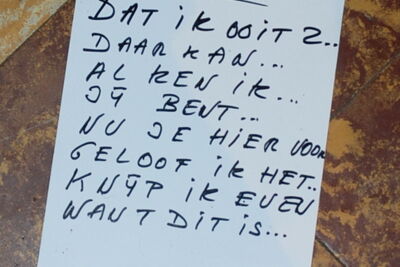 DAT iK OOiT Z..
DAAR KAN...
AL KEN iK...
JŸ BENT...
NU JE HiER VOOR
GELOOF iK HET..
KNŸP iK EVEN
WANT DiT iS...